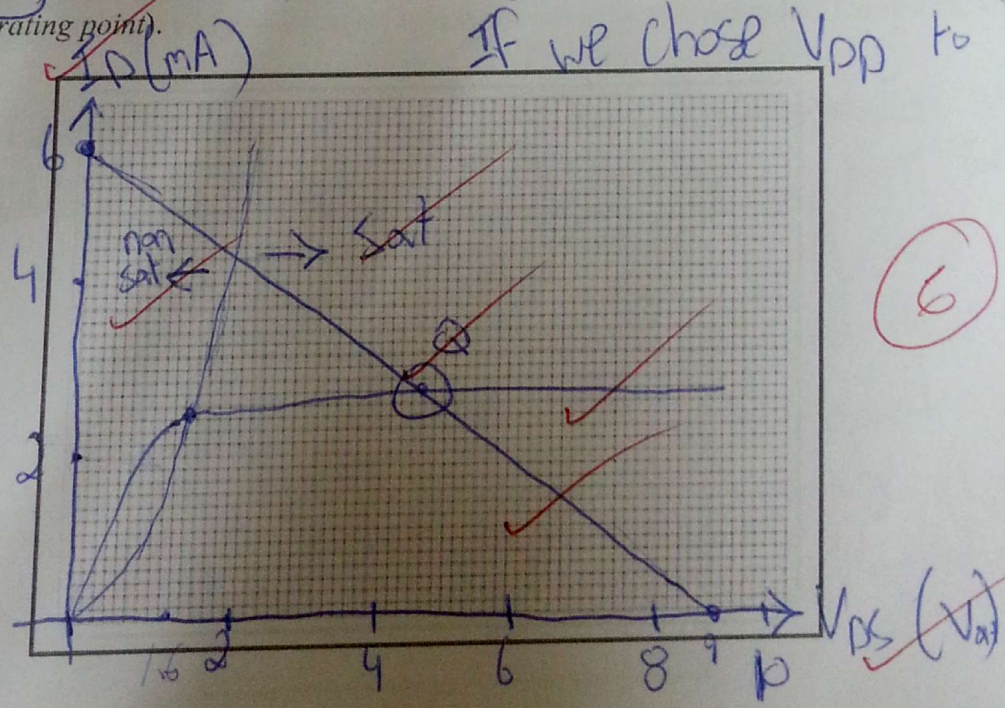 rating point).
If we chose VDD to
ID(mA)
6
non
sat ← → Sat
4
6
Q
2
1.6 2 4 6 8 9 10
VDS (Volt)